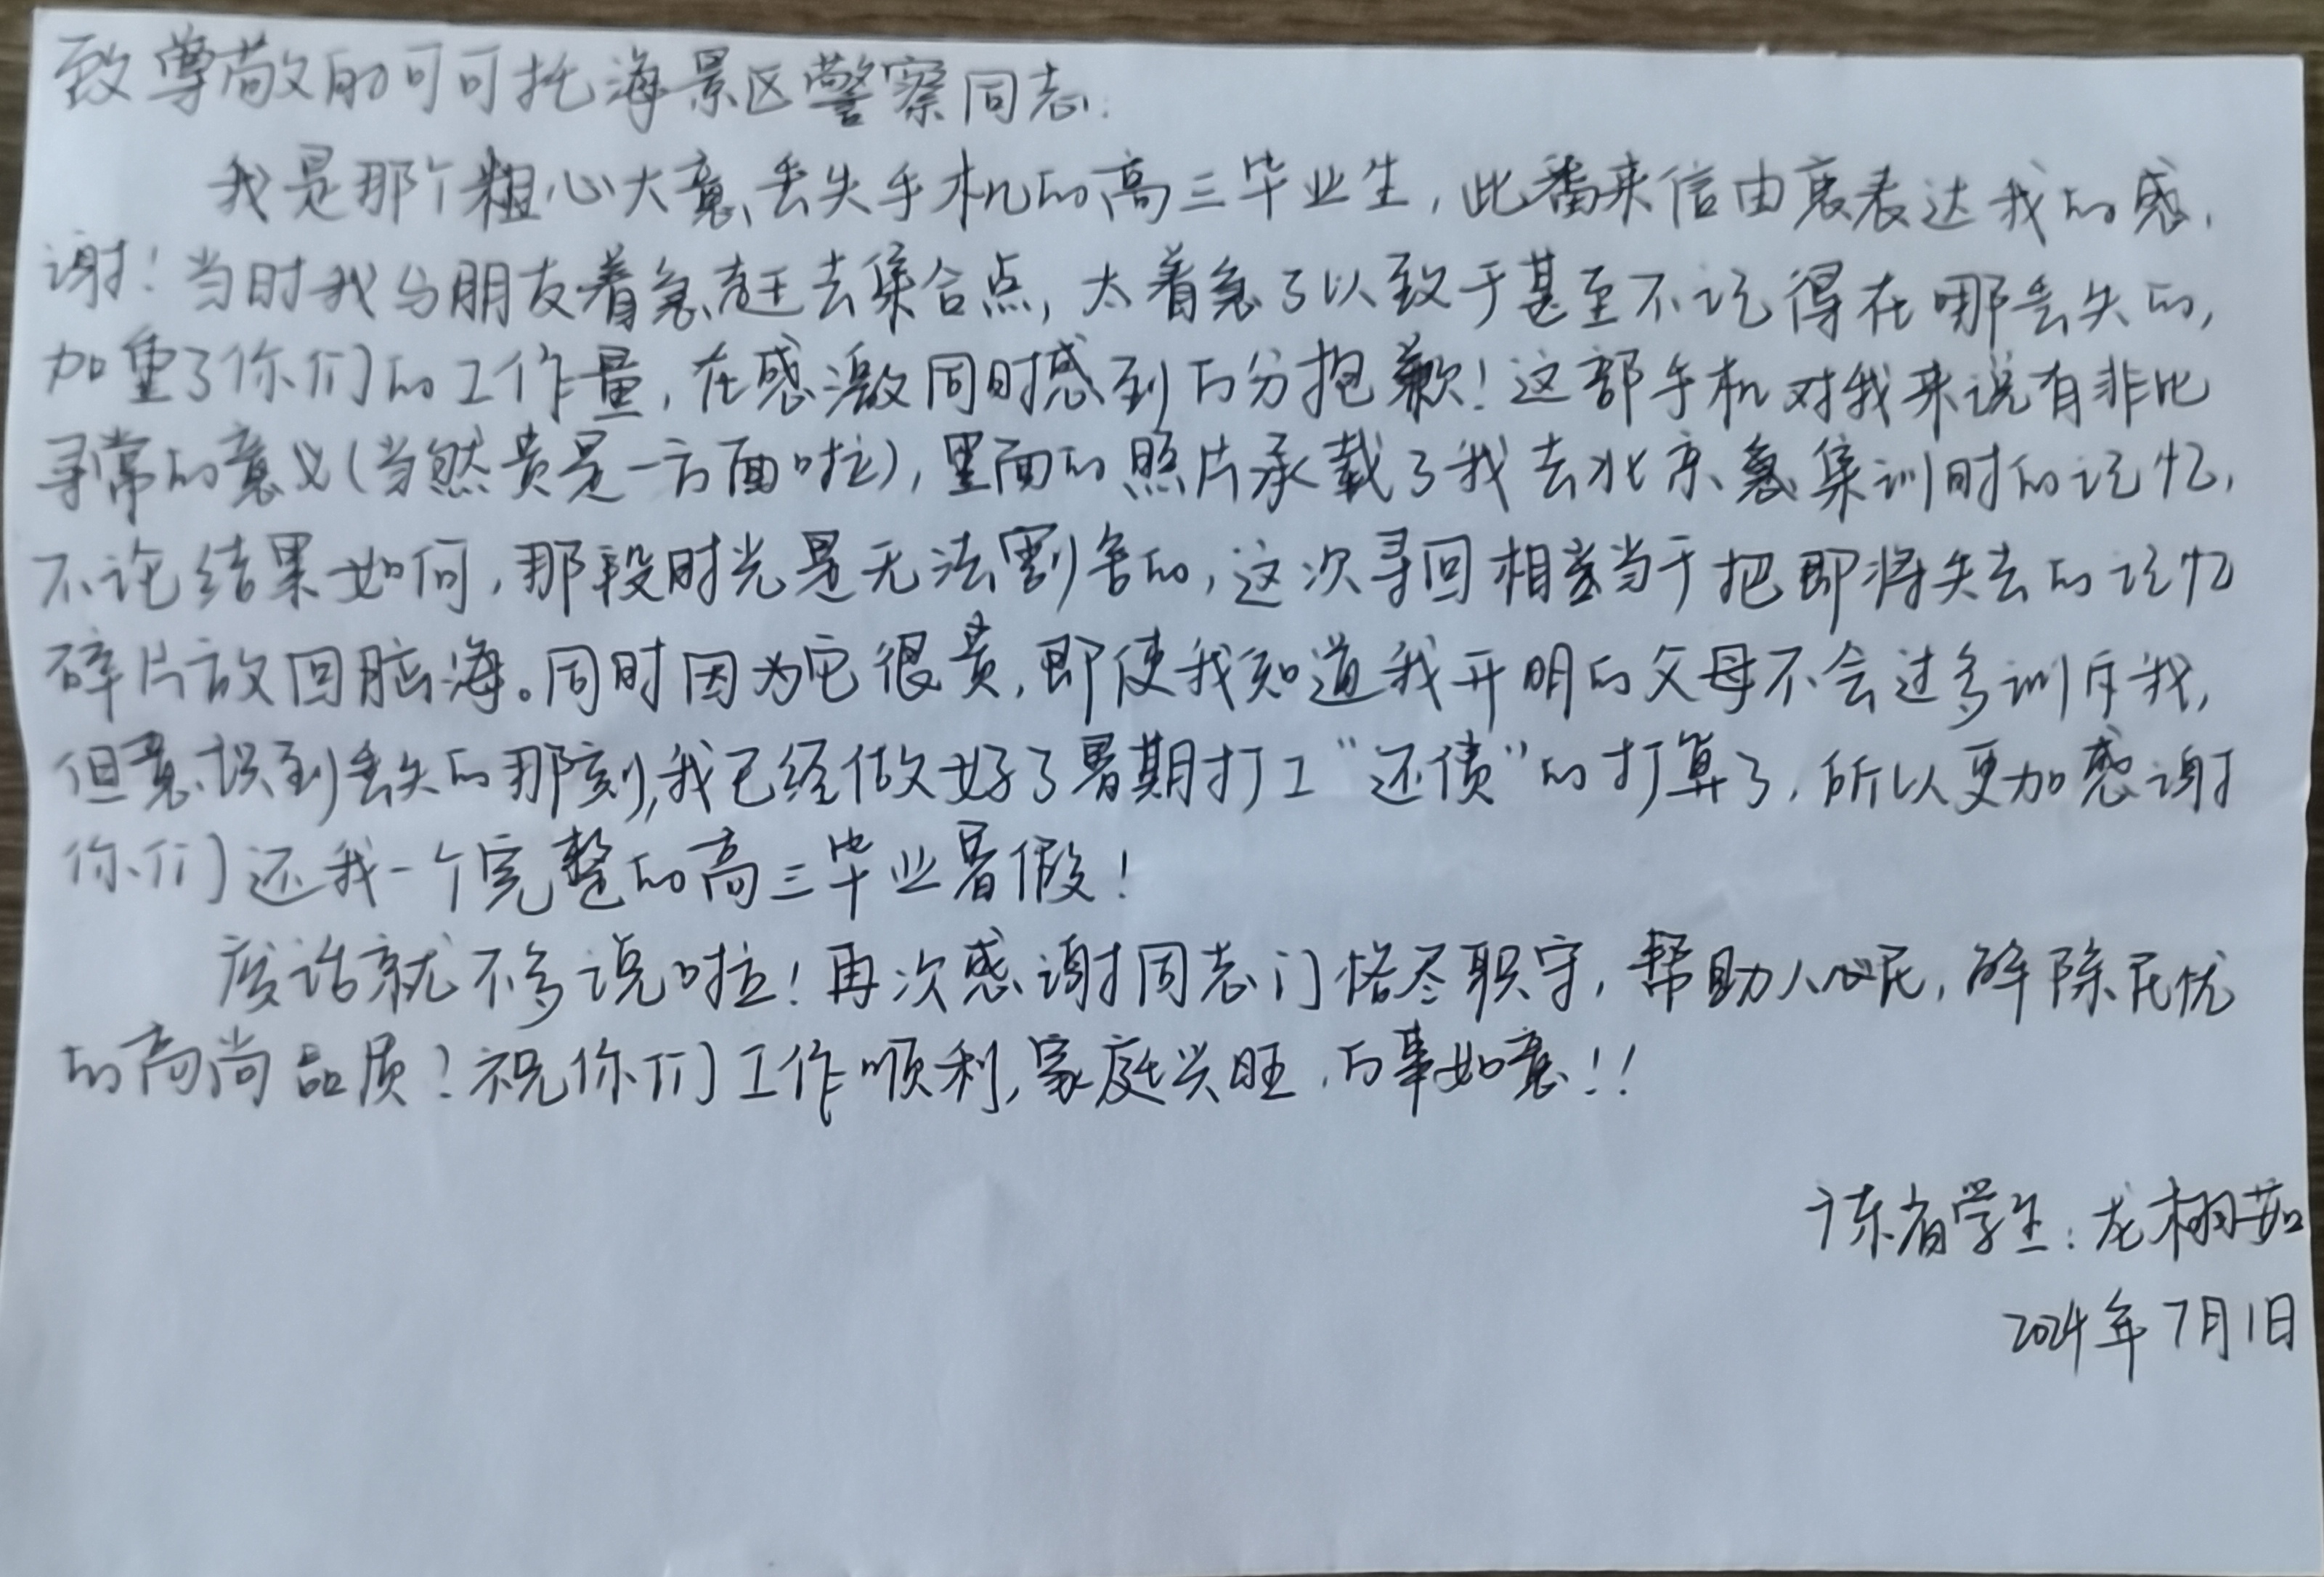 致尊敬的可可托海景区警察同志:
我是那个粗心大意、丢失手机的高三毕业生,此番来信由衷表达我的感
谢!当时我与朋友着急赶去集合点,太着急了以致于甚至不记得在哪丢失的,
加重了你们的工作量,在感激同时感到万分抱歉!这部手机对我来说有非比
寻常的意义(当然贵是一方面啦),里面的照片承载了我去北京集训时的记忆,
不论结果如何,那段时光是无法割舍的,这次寻回相当于把即将失去的记忆
碎片放回脑海。同时因为它很贵,即使我知道我开明的父母不会过多训斥我,
但意识到丢失的那刻,我已经做好了暑期打工“还债”的打算了,所以更加感谢
你们还我一个完整的高三毕业暑假!
废话就不多说啦!再次感谢同志们恪尽职守,帮助人民,解除民忧
的高尚品质!祝你们工作顺利,家庭兴旺,万事如意!!
广东省学生:龙栩茹
2024年7月1日